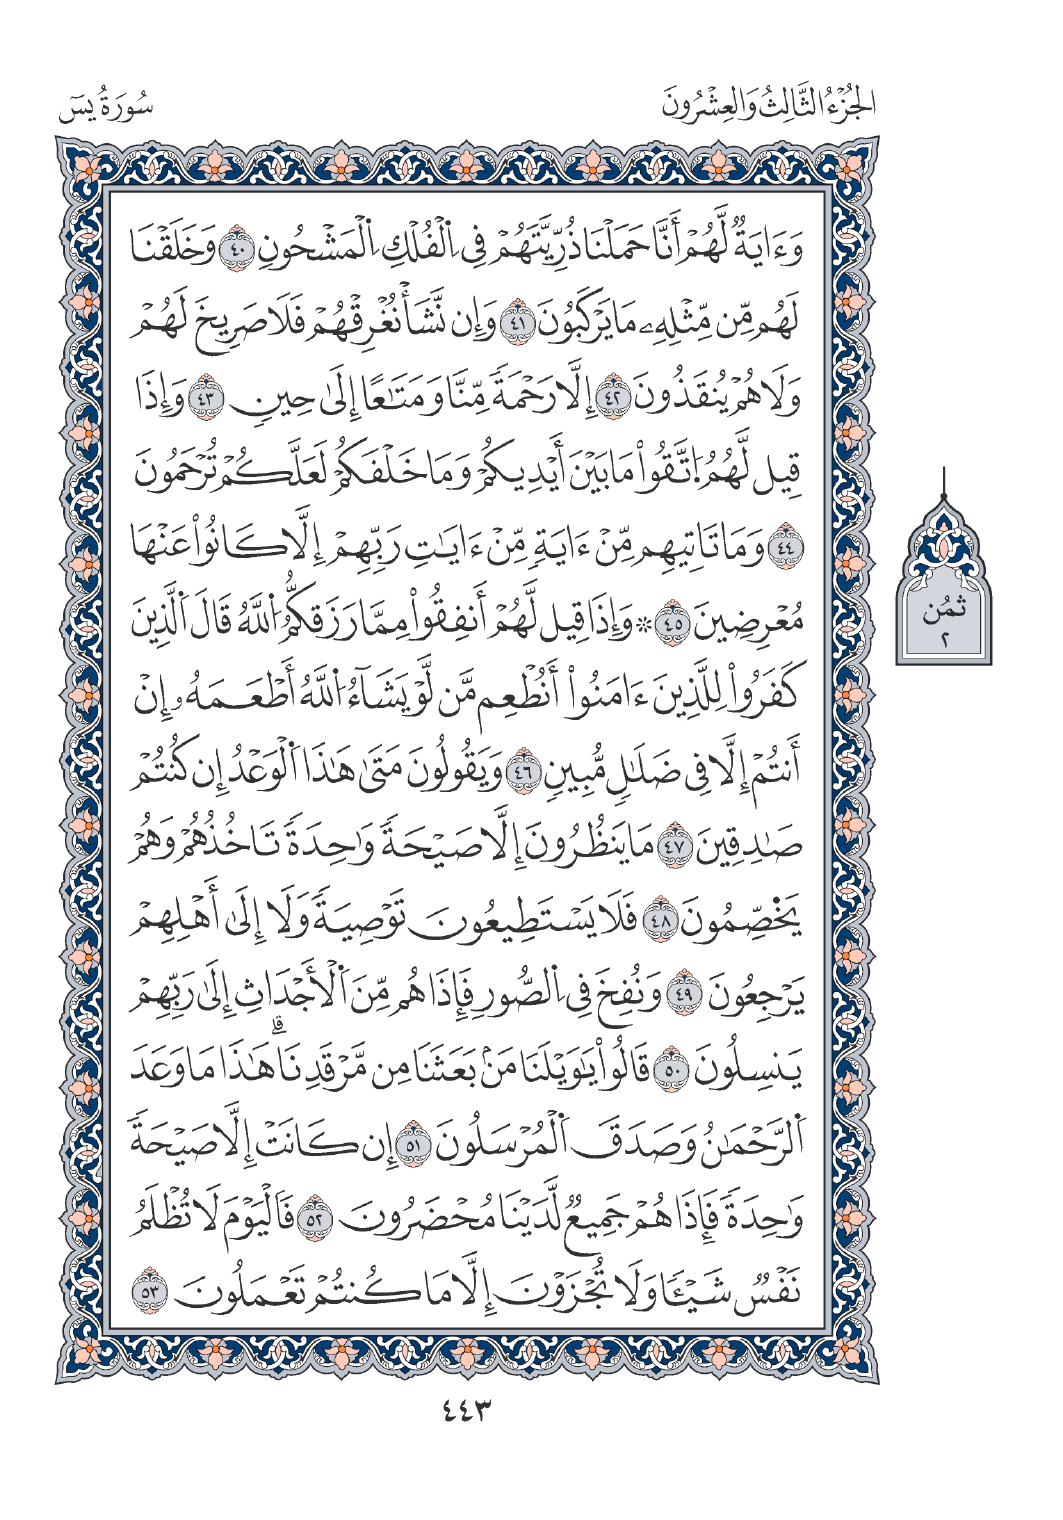 الجزء الثالث والعشرون
سورة يس
وَءَايَةٌ لَّهُمْ أَنَّا حَمَلْنَا ذُرِّيَّتَهُمْ فِي اِ۬لْفُلْكِ اِ۬لْمَشْحُونِ ٤٠ وَخَلَقْنَا
لَهُم مِّن مِّثْلِهِۦ مَا يَرْكَبُونَ ٤١ وَإِن نَّشَأْ نُغْرِقْهُمْ فَلَا صَرِيخَ لَهُمْ
وَلَا هُمْ يُنقَذُونَ ٤٢ إِلَّا رَحْمَةً مِّنَّا وَمَتَٰعًا إِلَىٰ حِينٍ ٤٣ وَإِذَا
قِيل لَّهُمُ اُ۪تَّقُوا۟ مَا بَيْنَ أَيْدِيكُمْ وَمَا خَلْفَكُمْ لَعَلَّكُمْ تُرْحَمُونَ
٤٤ وَمَا تَاتِيهِم مِّنْ ءَايَةٍ مِّنْ ءَايَٰتِ رَبِّهِمْ إِلَّا كَانُوا۟ عَنْهَا
مُعْرِضِينَ ٤٥ ۞ وَإِذَا قِيل لَّهُمْ أَنفِقُوا۟ مِمَّا رَزَقكُّمُ اُ۬للَّهُ قَالَ اَ۬لَّذِينَ
كَفَرُوا۟ لِلَّذِينَ ءَامَنُوا۟ أَنُطْعِم مَّن لَّوْ يَشَآءُ اُ۬للَّهُ أَطْعَمَهُۥ إِنْ
أَنتُمْ إِلَّا فِي ضَلَٰلٍ مُّبِينٍ ٤٦ وَيَقُولُونَ مَتَىٰ هَٰذَا اَ۬لْوَعْدُ إِن كُنتُمْ
صَٰدِقِينَ ٤٧ مَا يَنظُرُونَ إِلَّا صَيْحَةً وَٰحِدَةً تَاخُذُهُمْ وَهُمْ
يَخَصِّمُونَ ٤٨ فَلَا يَسْتَطِيعُونَ تَوْصِيَةً وَلَا إِلَىٰ أَهْلِهِمْ
يَرْجِعُونَ ٤٩ وَنُفِخَ فِي اِ۬لصُّورِ فَإِذَا هُم مِّنَ اَ۬لْأَجْدَاثِ إِلَىٰ رَبِّهِمْ
يَنسِلُونَ ٥٠ قَالُوا۟ يَٰوَيْلَنَا مَنۢ بَعَثَنَا مِن مَّرْقَدِنَا ۗ هَٰذَا مَا وَعَدَ
اَ۬لرَّحْمَٰنُ وَصَدَقَ اَ۬لْمُرْسَلُونَ ٥١ إِن كَانَتْ إِلَّا صَيْحَةً
وَٰحِدَةً فَإِذَا هُمْ جَمِيعٌ لَّدَيْنَا مُحْضَرُونَ ٥٢ فَالْيَوْمَ لَا تُظْلَمُ
نَفْسٌ شَيْـًٔا وَلَا تُجْزَوْنَ إِلَّا مَا كُنتُمْ تَعْمَلُونَ ٥٣
ثمُن
٢
٤٤٣